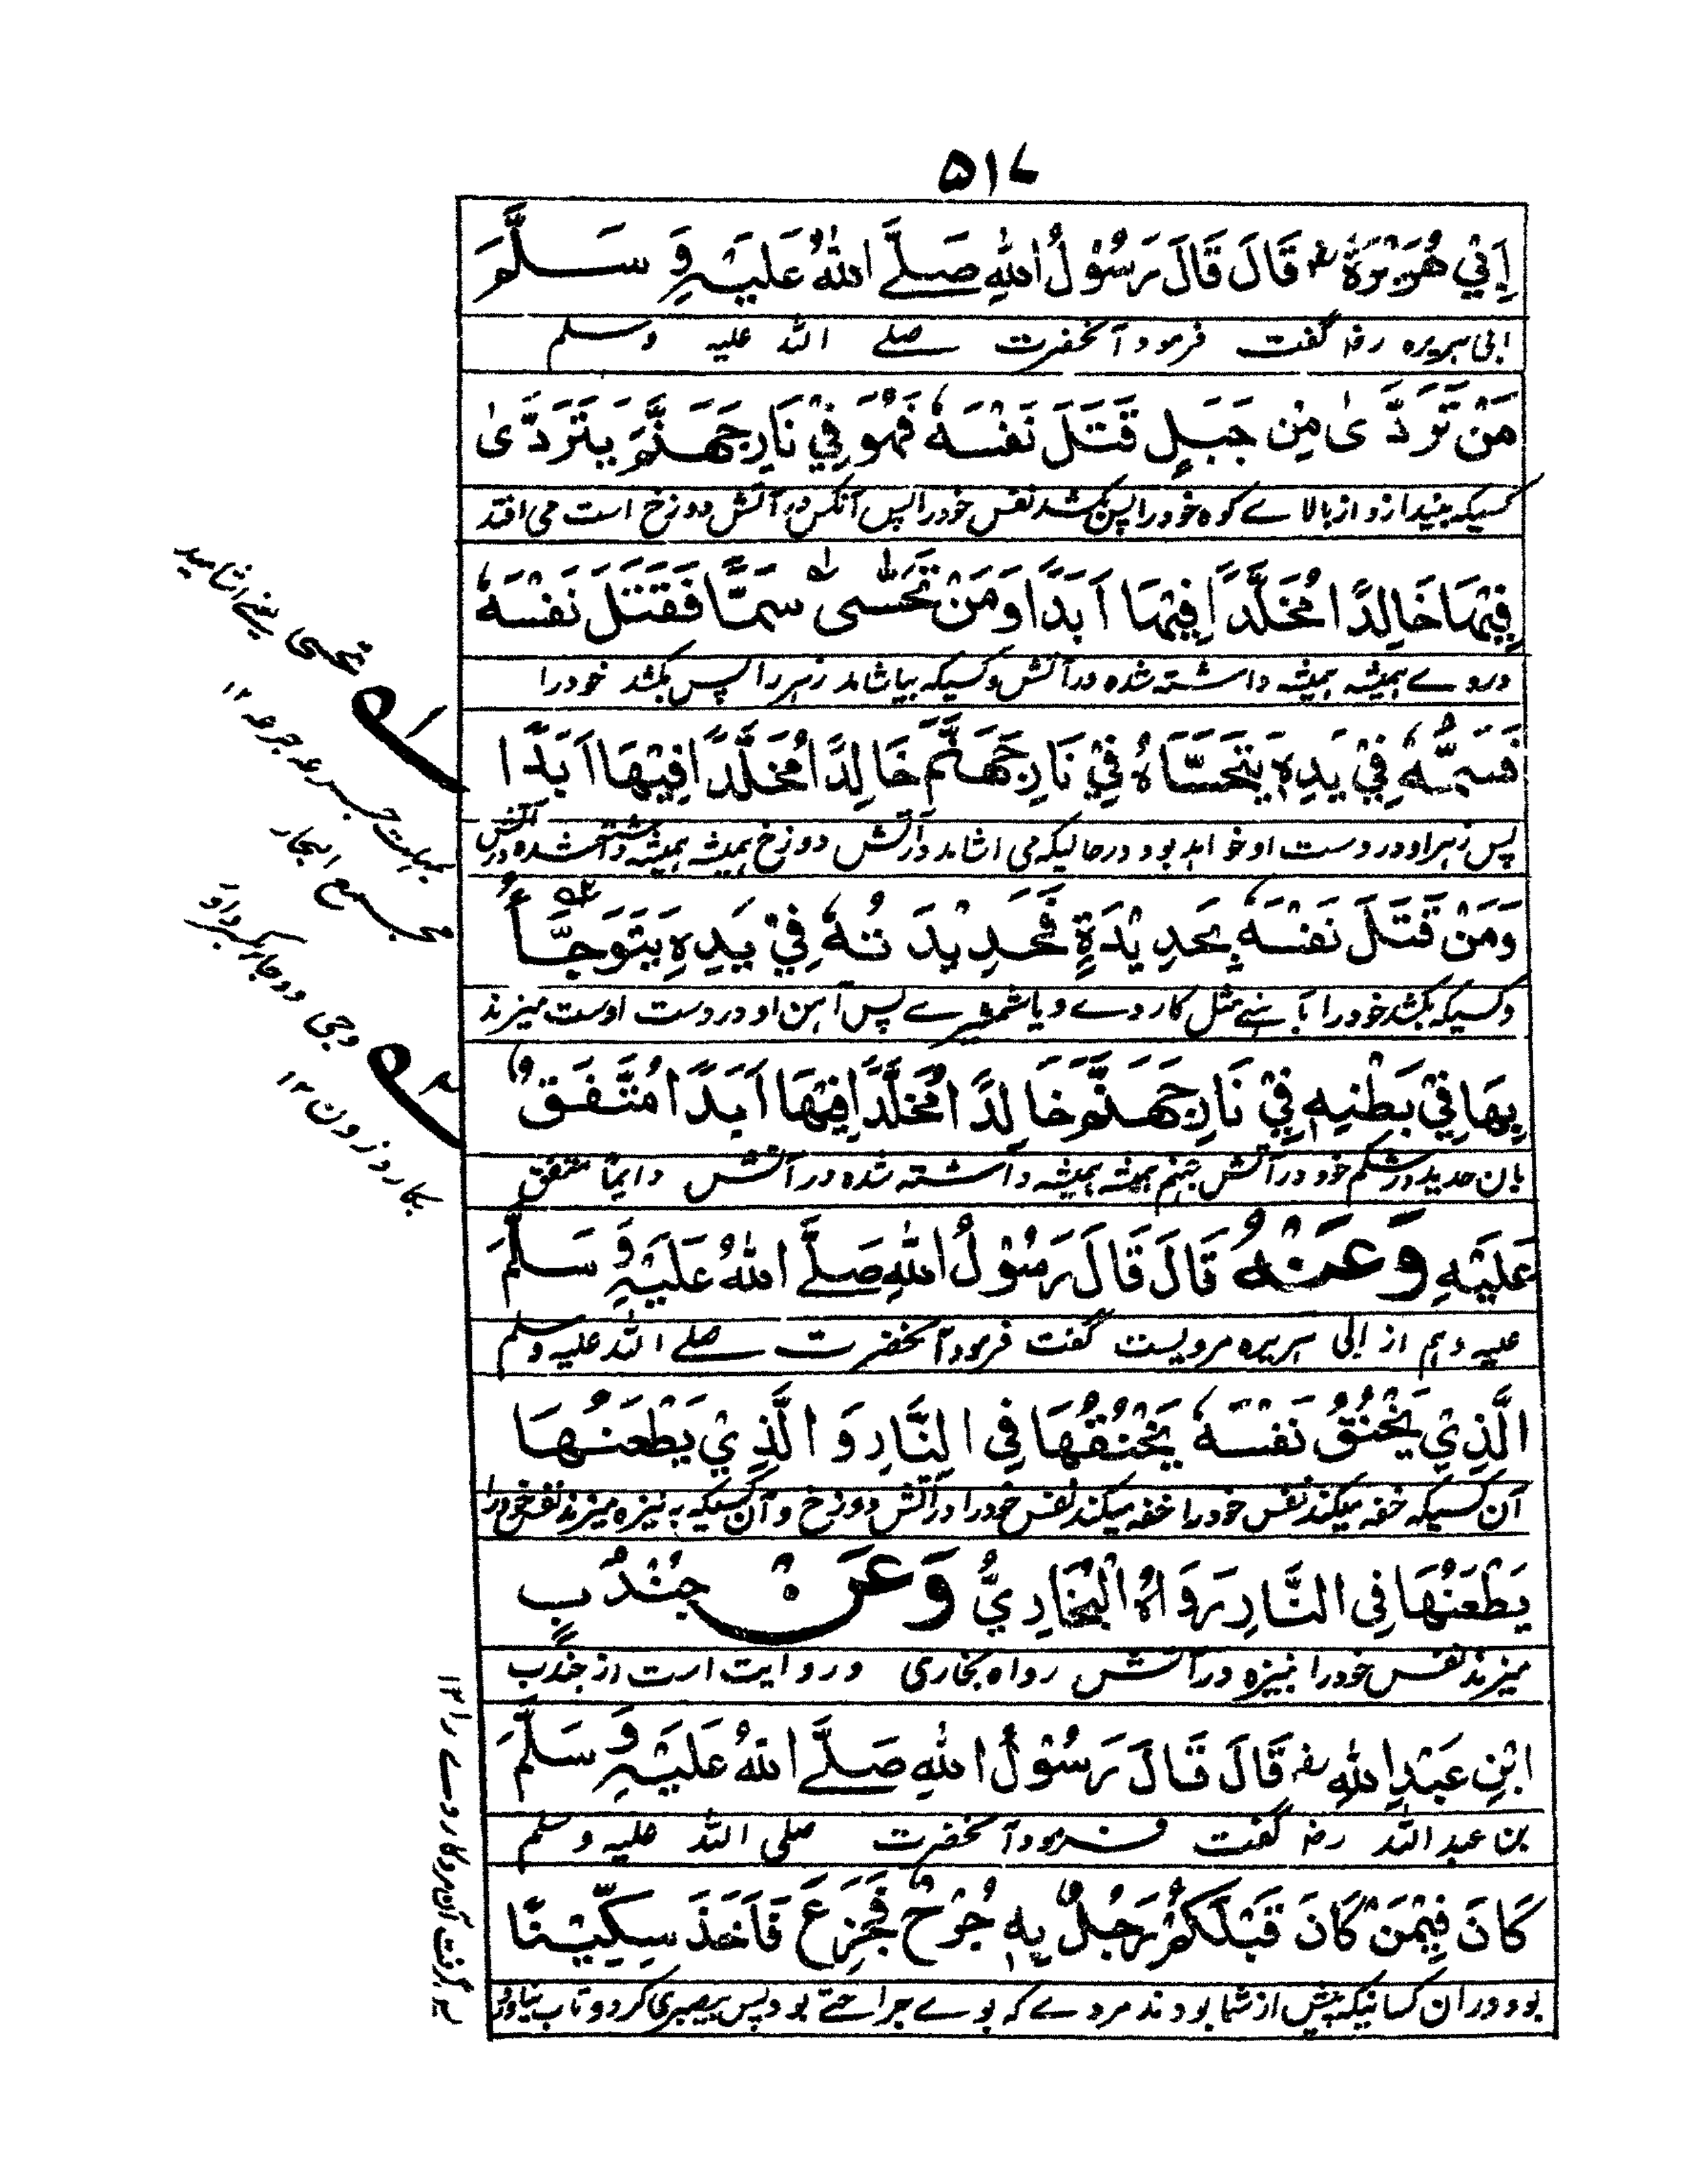 ۵۱۷
اَبِيْ هُرَيْرَةَ رض قَالَ قَالَ رَسُوْلُ اللهِ صَلَّے اللهُ عَلَيْهِ وَ سَلَّمَ
ابی ہریرہ رض گفت فرمود آنحضرت صلے اللہ علیہ وسلم
مَنْ تَرَدّٰى مِنْ جَبَلٍ قَتَلَ نَفْسَهٗ فَهُوَ فِيْ نَارِ جَهَنَّمَ يَتَرَدّٰى
کسیکہ بیندازد از بالاے کوہ خود را پس بکشد نفس خود را پس آنکس در آتش دوزخ است می افتد
فِيْهَا خَالِدًا مُخَلَّدًا فِيْهَا اَبَدًا وَمَنْ تَحَسّٰى سَمًّا فَقَتَلَ نَفْسَهٗ
دروے ہمیشہ ہمیشہ داشتہ شدہ در آتش وکسیکہ بیاشامد زہر را پس بکشد خود را
فَسَمُّهٗ فِيْ يَدِهٖ يَتَحَسَّاهُ فِيْ نَارِ جَهَنَّمَ خَالِدًا مُخَلَّدًا فِيْهَا اَبَدًا
پس زہر او در دست او خواہد بود درحالیکہ می اشامد در آتش دوزخ ہمیشہ ہمیشہ داشتہ شدہ در آتش
وَمَنْ قَتَلَ نَفْسَهٗ بِحَدِيْدَةٍ فَحَدِيْدَتُهٗ فِيْ يَدِهٖ يَتَوَجَّأُ
وکسیکہ بکشد خود را بآہنے مثل کاردے ویا شمشیرے پس آہن او در دست اوست میزند
بِهَا فِيْ بَطْنِهٖ فِيْ نَارِ جَهَنَّمَ خَالِدًا مُخَلَّدًا فِيْهَا اَبَدًا مُتَّفَقٌ
بان حدید در شکم خود در آتش جہنم ہمیشہ ہمیشہ داشتہ شدہ در آتش دایما متفق
عَلَيْهِ وَعَنْهُ قَالَ قَالَ رَسُوْلُ اللهِ صَلَّے اللهُ عَلَيْهِ وَسَلَّمَ
علیہ وہم از ابی ہریرہ مرویست گفت فرمود آنحضرت صلے اللہ علیہ وسلم
الَّذِيْ يَخْنُقُ نَفْسَهٗ يَخْنُقُهَا فِي النَّارِ وَ الَّذِيْ يَطْعَنُهَا
آن کسیکہ خفہ میکند نفس خود را خفہ میکند نفس خود را در آتش دوزخ و آن کسیکہ بہ نیزہ میزند نفس خود را
يَطْعَنُهَا فِي النَّارِ رَوَاهُ الْبُخَارِيُّ وَعَنْ جُنْدُبِ
میزند نفس خود را بنیزہ در آتش رواہ بخاری وروایت است از جندب
ابْنِ عَبْدِ اللهِ رض قَالَ قَالَ رَسُوْلُ اللهِ صَلَّے اللهُ عَلَيْهِ وَسَلَّمَ
بن عبد اللہ رض گفت فرمود آنحضرت صلی اللہ علیہ وسلم
كَانَ فِيْمَنْ كَانَ قَبْلَكُمْ رَجُلٌ بِهٖ جُرْحٌ فَجَزِعَ فَاَخَذَ سِكِّيْنًا
بود دران کسانیکہ پیش از شما بودند مردے کہ بوے جراحتے بود پس بیصبری کرد و تاب نیاورد
تحسی یعنے اشامید
جرعہ جرعہ ۱۲
مجمع البحار
وجی
بکارد زدن ۱۲
پس گرفت آن مرد کاردے را ۱۲